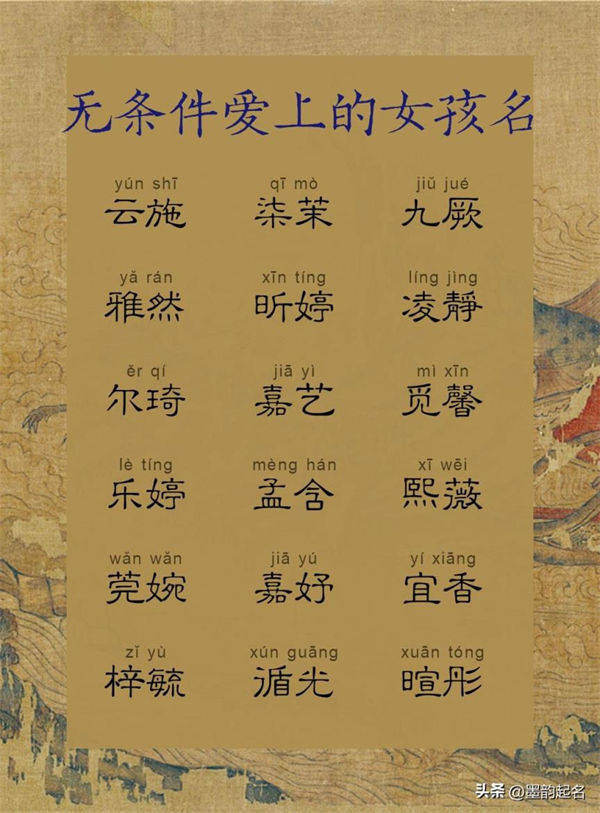 无条件爱上的女孩名
yún shī qī mò jiǔ jué
云施 柒茉 九厥
yǎ rán xīn tíng líng jìng
雅然 昕婷 凌靜
ěr qí jiā yì mì xīn
尔琦 嘉艺 觅馨
lè tíng mèng hán xī wēi
乐婷 孟含 熙薇
wǎn wǎn jiā yú yí xiāng
莞婉 嘉妤 宜香
zǐ yù xún guāng xuān tóng
梓毓 循光 暄彤
头条 @墨韵起名